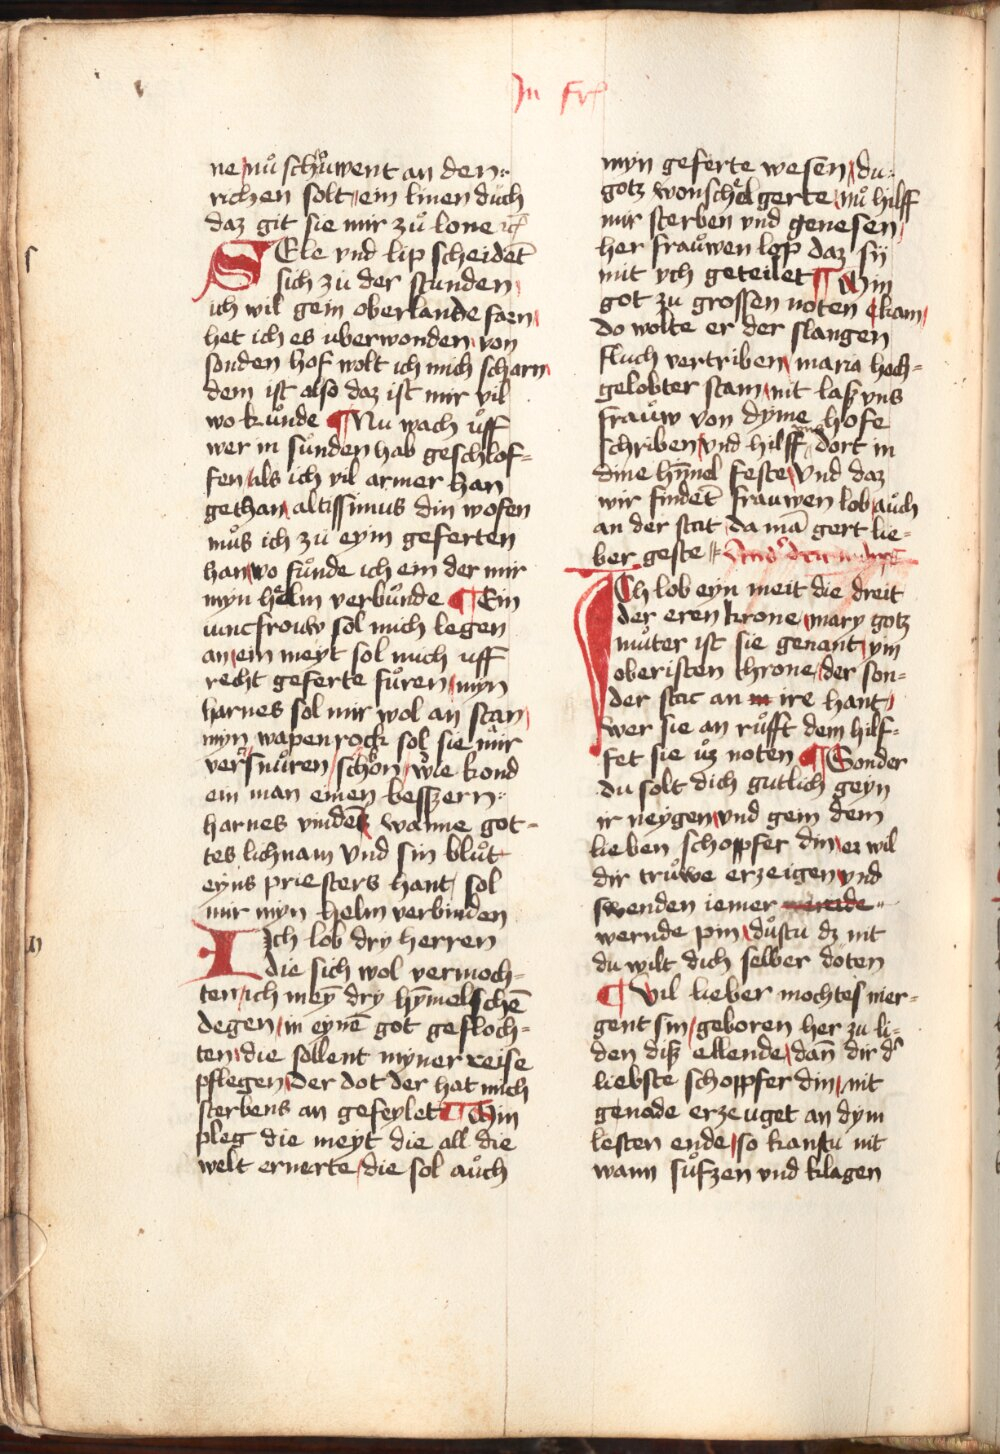 In fr
ne / nuͦ schuͦwent an den
richen solt / ein linen duͦch
daz git sie mir zuͦ lone
SEle vnd lip scheident̄
sich zu der stunden
ich wil gein oberlande faen
het ich es uberwonden von
sonden hof wolt ich mich scharn
dem ist also daz ist mir vil
wo kuͦnde ¶ Nu wach uͦff
wer in suͦnden hab geschlof=
fen / als ich vil armer han
gethan / altissimus din wofen
muͦs ich zu eym geferten
han / wo fuͦnde ich ein der mir
myn helm verbuͦnde ¶ Ein
iuncfrouw sol mich legen
an / ein meyt sol mich uff
recht geferte fuͦren / myn
harnes sol mir wol an stan
myn wapenrock sol sie mir
versnuͦren / schoͤn / wie kond
ein man einen besszern
harnes vinden wanne got=
tes lichnam vnd sin bluͦt
eyns priesters hant / sol
mir myn helm verbinden
Ich lob dry herren
die sich wol vermoch=
ten / ich mey̅ dry hy̅melschē
degen / in eynē got gefloch=
ten / die sollent myner reise
pflegen / der dot der hat mich
sterbens an gefeylet ¶ Min
pleg die meyt die all die
welt ernerte / die sol auͦch
myn geferte wesen / du
gotz wonschelgerte / nuͦ hilff
mir sterben vnd genesen
her frauͦwen lop daz sy
mit ych geteilet ¶ Min
got zu grossen noten kam
do wolte er der slangen
fluch vertriben / maria hoch=
gelobter stam / nit laß vns
frauͦw von dyme hofe
schriben / vnd hilff vns dort in
dine hy̅mel feste / vnd daz
wir findet̄ frauwen lob / auͦch
an der stat / da mā gert lie=
ber geste
Ich lob eyn meit die dreit
der eren krone / mary gotz
muͦter ist sie genant / ym
oberisten throne / der son=
der stat an in ire hant
wer sie an ruͦfft dem hilf=
fet sie uͦz noten ¶ Sonder
du solt dich gutlich geyn
ir neygen / vnd gein dem
lieben schopfer din / er wil
dir truͦwe erzeigen / vnd
swenden iemer
wernde pin / duͦstu dz nit
du wilt dich selber doten
¶ Vil lieber mochtes nier=
gent sin / geboren her zu li=
den diß ellende / dan̄ dir d'
liebste schopfer din / nit
genade erzeuget an dym
lesten ende / so kanstu nit
wann suͦfzen vnd klagen